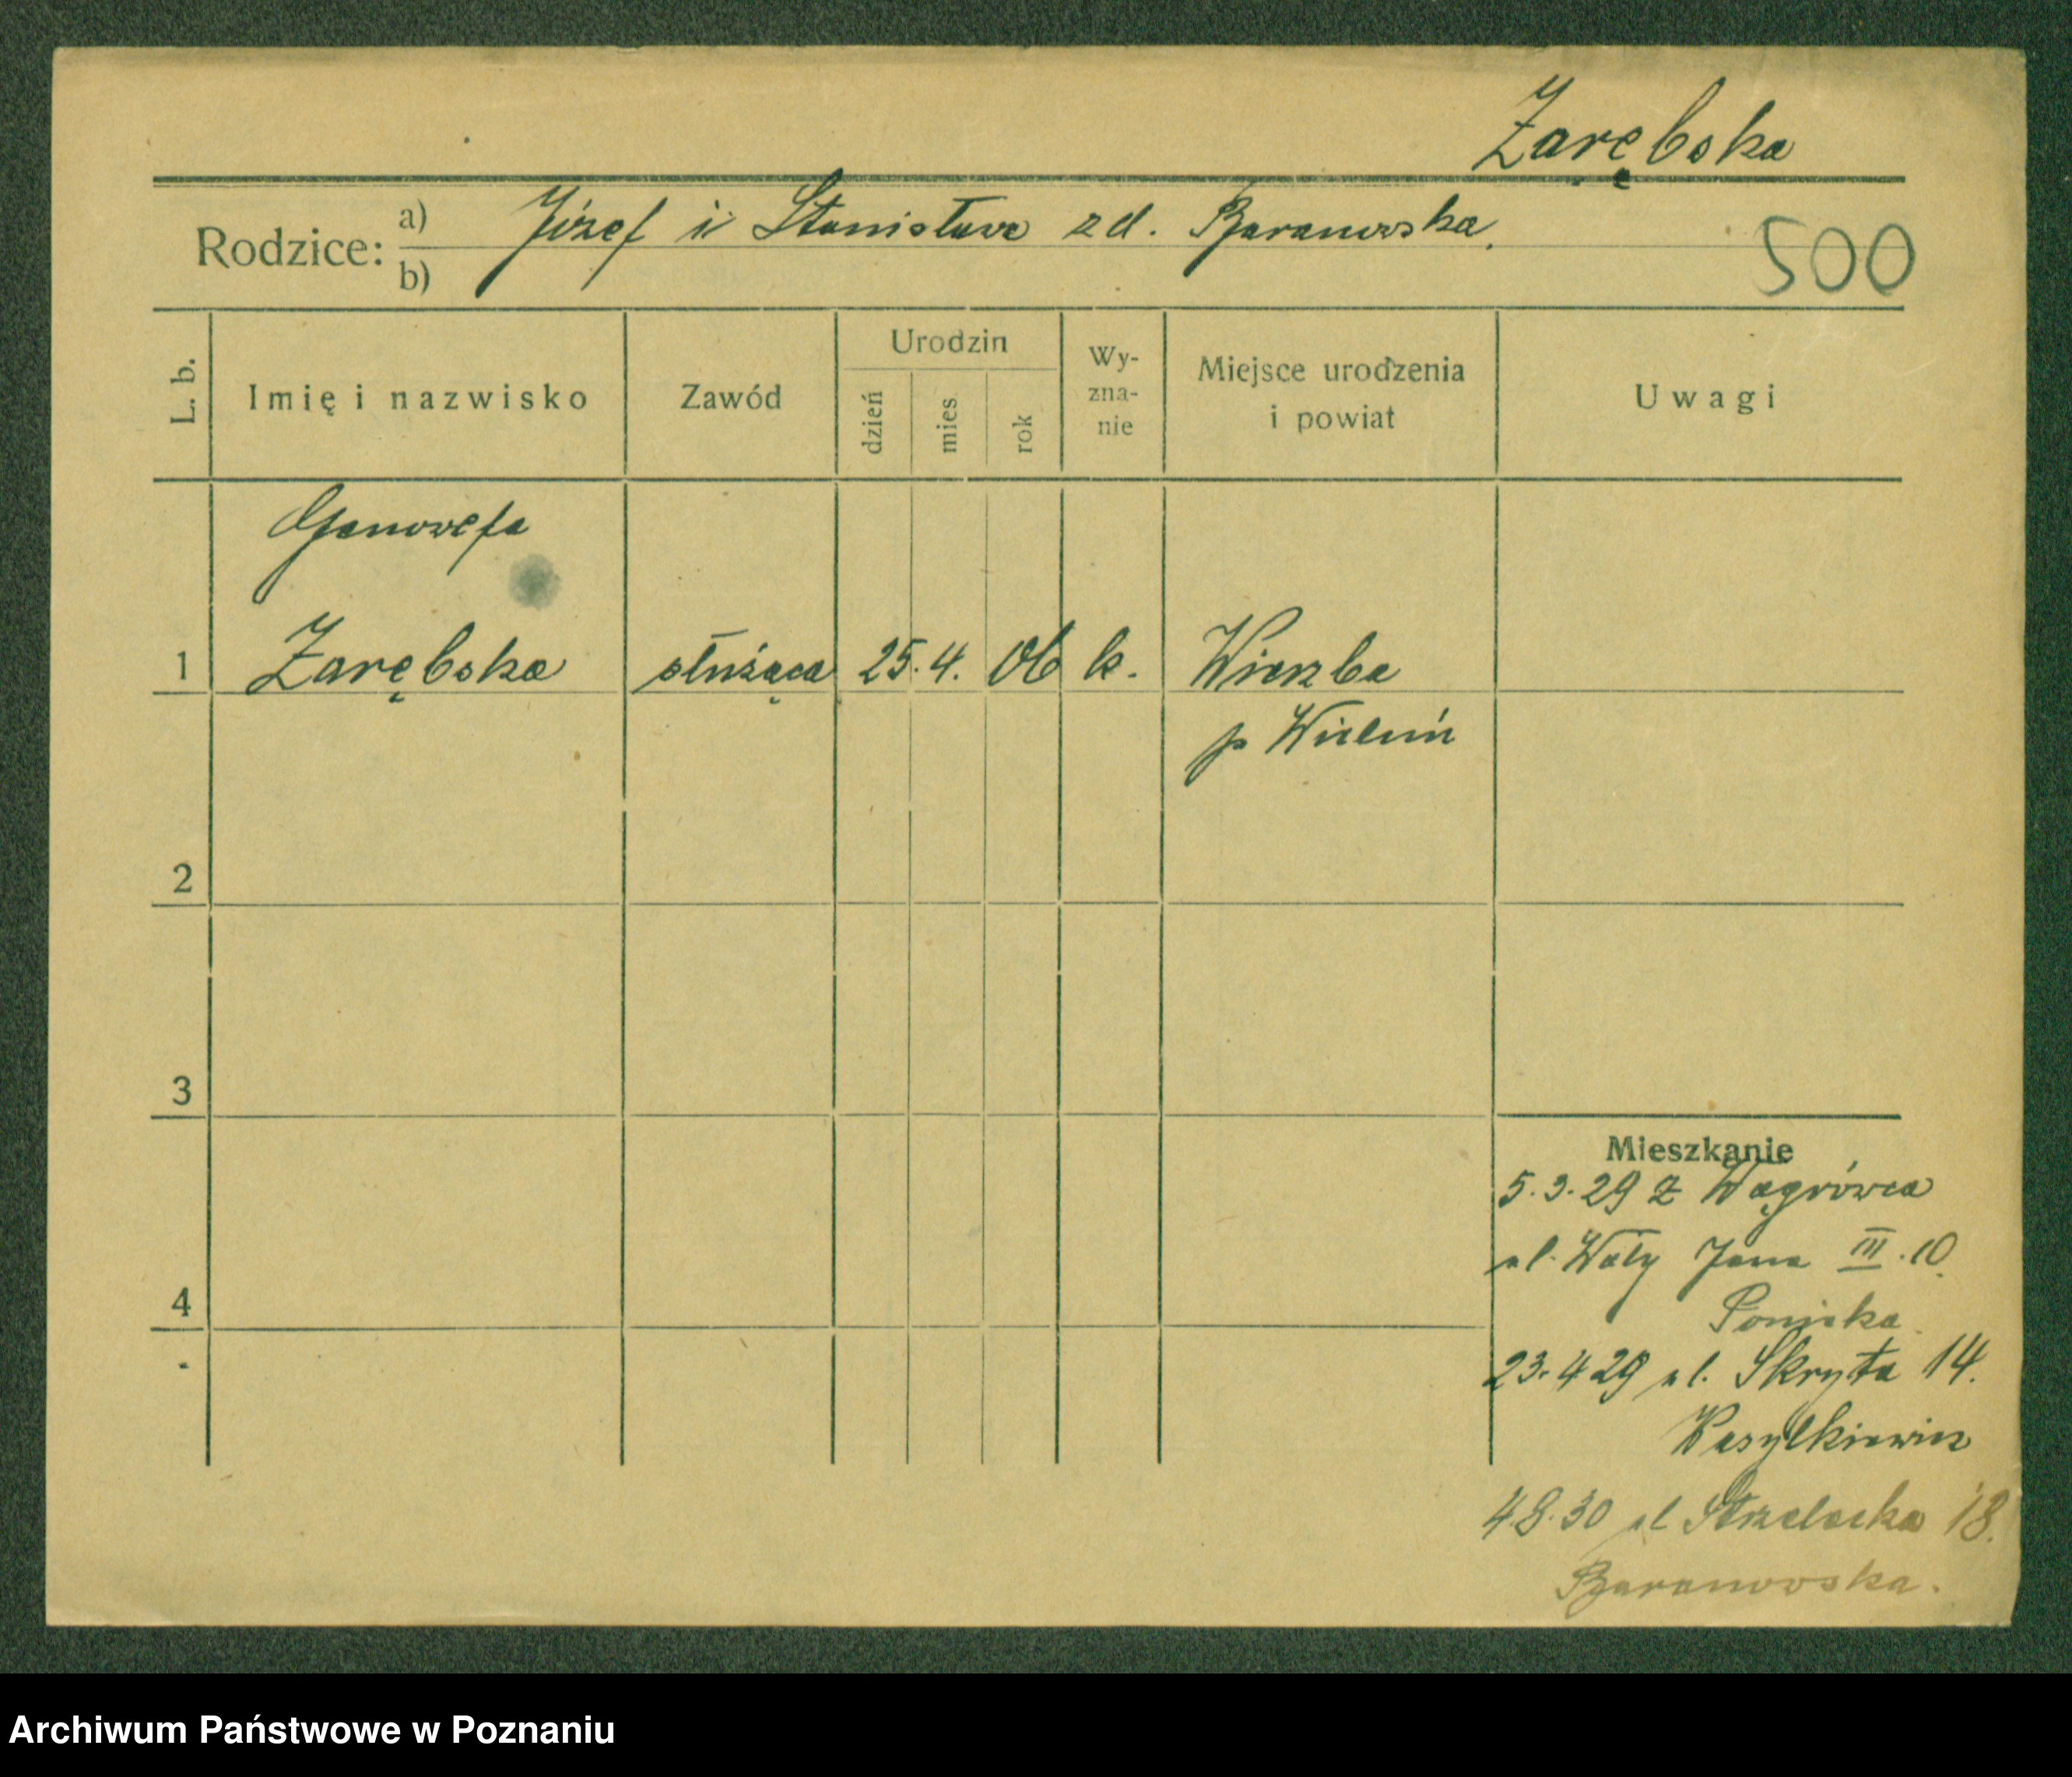 Zarębska
Rodzice: a) Józef i Stanisława zd. Baranowska.
b)
500
L. b.
Imię i nazwisko
Zawód
Urodzin
dzień
mies
rok
Wy-
zna-
nie
Miejsce urodzenia
i powiat
Uwagi
Genowefa
1 Zarębska służąca 25. 4. 06 k. Wierzba
p Wieluń
2
3
4
Mieszkanie
5.3.29 z Wągrówca
ul. Wały Jana III. 10.
23.4 29 ul. Skryta 14.
Wasylkiewicz
4.8.30 ul Strzelecka 18.
Baranowska.
Archiwum Państwowe w Poznaniu